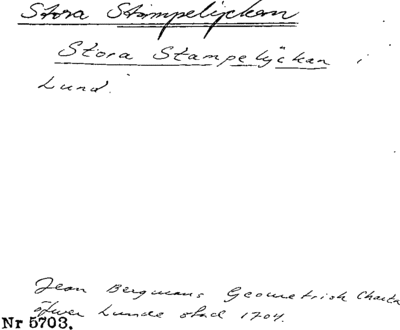 Stora Stämpelÿckan
Stora Stampelÿckan i
Lund.
Jean Bergmans Geometrisk Charta
öfwer Lunds stad 1704.
Nr 5703.